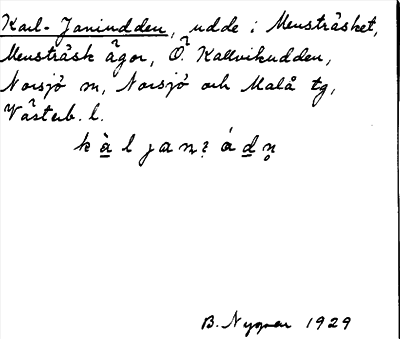 Karl-Janudden, udde i Mensträsket,
Mensträsk ägor, Ö. Kallvikudden,
Norsjö sn, Norsjö och Malå tg,
Västerb. l.
kàljan ádn̥
B. Nygren 1929